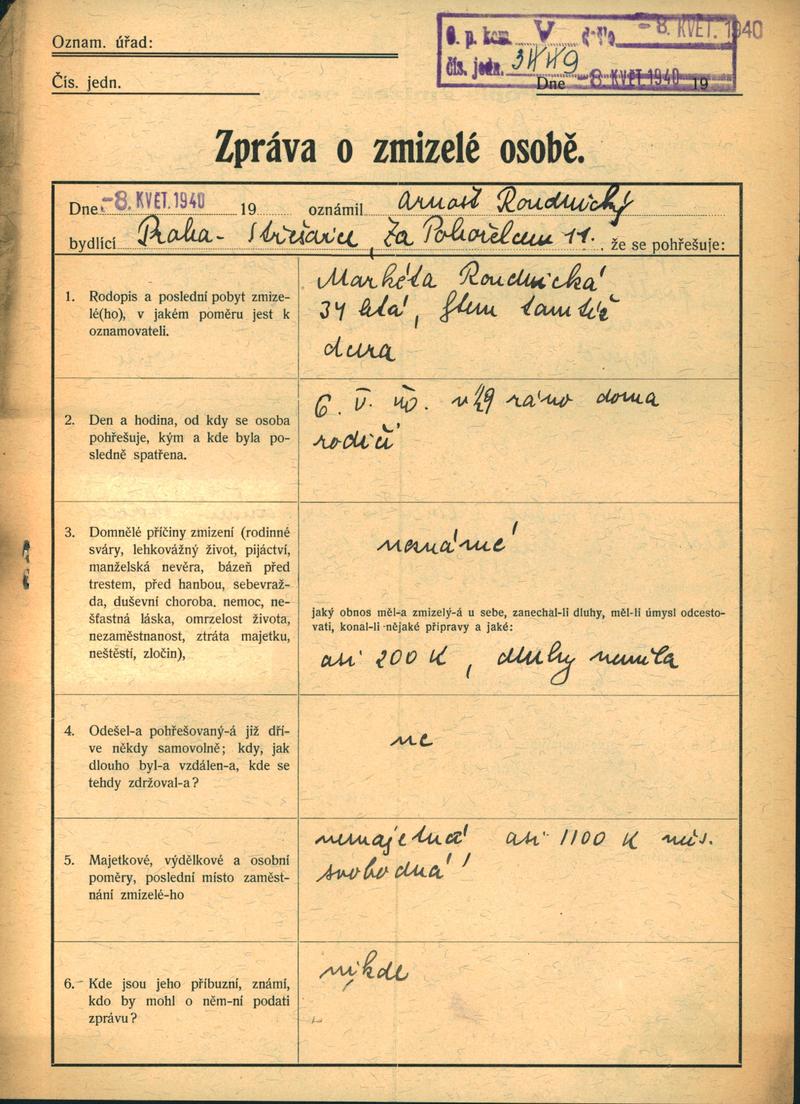 Oznam. úřad:
Čís. jedn.
O. p. kom. V
- 8. KVĚT. 1940
čís. jedn. 3449
Dne - 8. KVĚT. 1940 19
Zpráva o zmizelé osobě.
Dne - 8. KVĚT. 1940 19 oznámil Arnošt Roudnický
bydlící Praha - Střešovice, Za Pohořelcem 11. , že se pohřešuje:
1. Rodopis a poslední pobyt zmize-
lé(ho), v jakém poměru jest k
oznamovateli.
Markéta Roudnická
34 letá, bytem tamtéž
dcera
2. Den a hodina, od kdy se osoba
pohřešuje, kým a kde byla po-
sledně spatřena.
6. V. 40. v ½9 ráno doma
rodiči
3. Domnělé příčiny zmizení (rodinné
sváry, lehkovážný život, pijáctví,
manželská nevěra, bázeň před
trestem, před hanbou, sebevraž-
da, duševní choroba. nemoc, ne-
šťastná láska, omrzelost života,
nezaměstnanost, ztráta majetku,
neštěstí, zločin),
neznámé
jaký obnos měl-a zmizelý-á u sebe, zanechal-li dluhy, měl-li úmysl odcesto-
vati, konal-li nějaké přípravy a jaké:
asi 200 K, dluhy neměla
4. Odešel-a pohřešovaný-á již dří-
ve někdy samovolně; kdy, jak
dlouho byl-a vzdálen-a, kde se
tehdy zdržoval-a?
ne
5. Majetkové, výdělkové a osobní
poměry, poslední místo zaměst-
nání zmizelé-ho
nemajetná asi 1100 K měs.
svobodná
6. Kde jsou jeho příbuzní, známí,
kdo by mohl o něm-ní podati
zprávu?
nikde